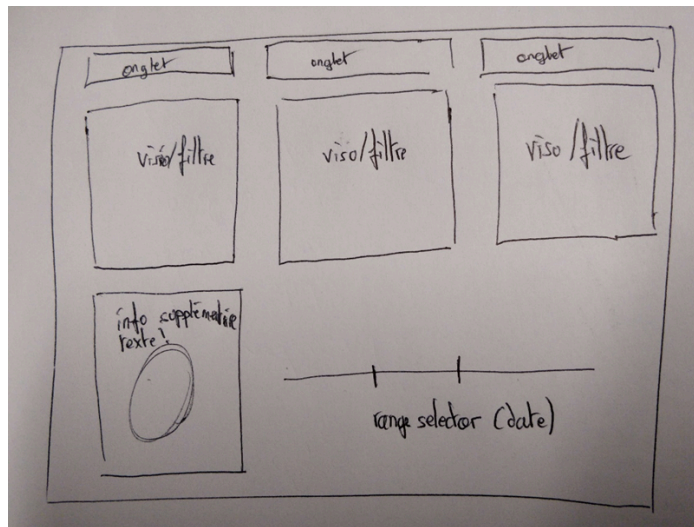 onglet
onglet
onglet
viso/filtre
viso/filtre
viso/filtre
info supplémentaire
texte!
range selector (date)